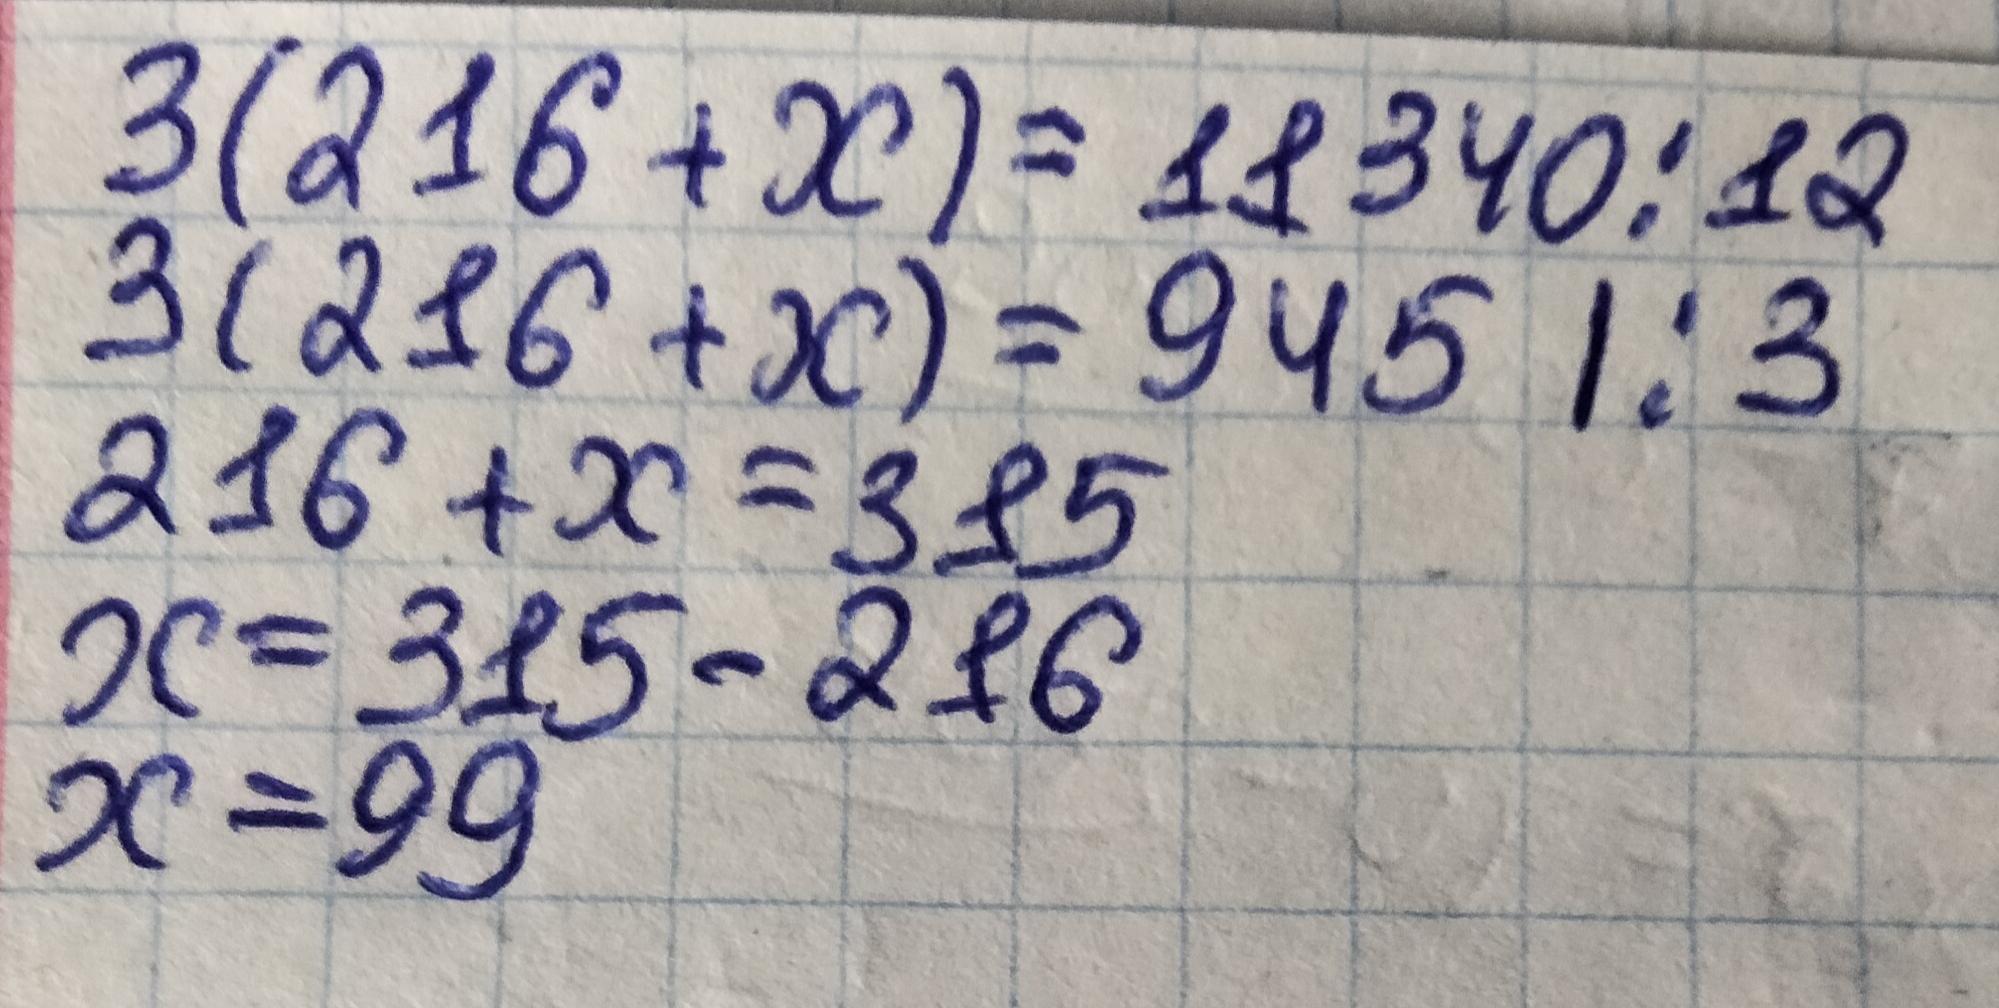 3(216+x)=11340:12
3(216+x)=945 |:3
216+x=315
x=315-216
x=99